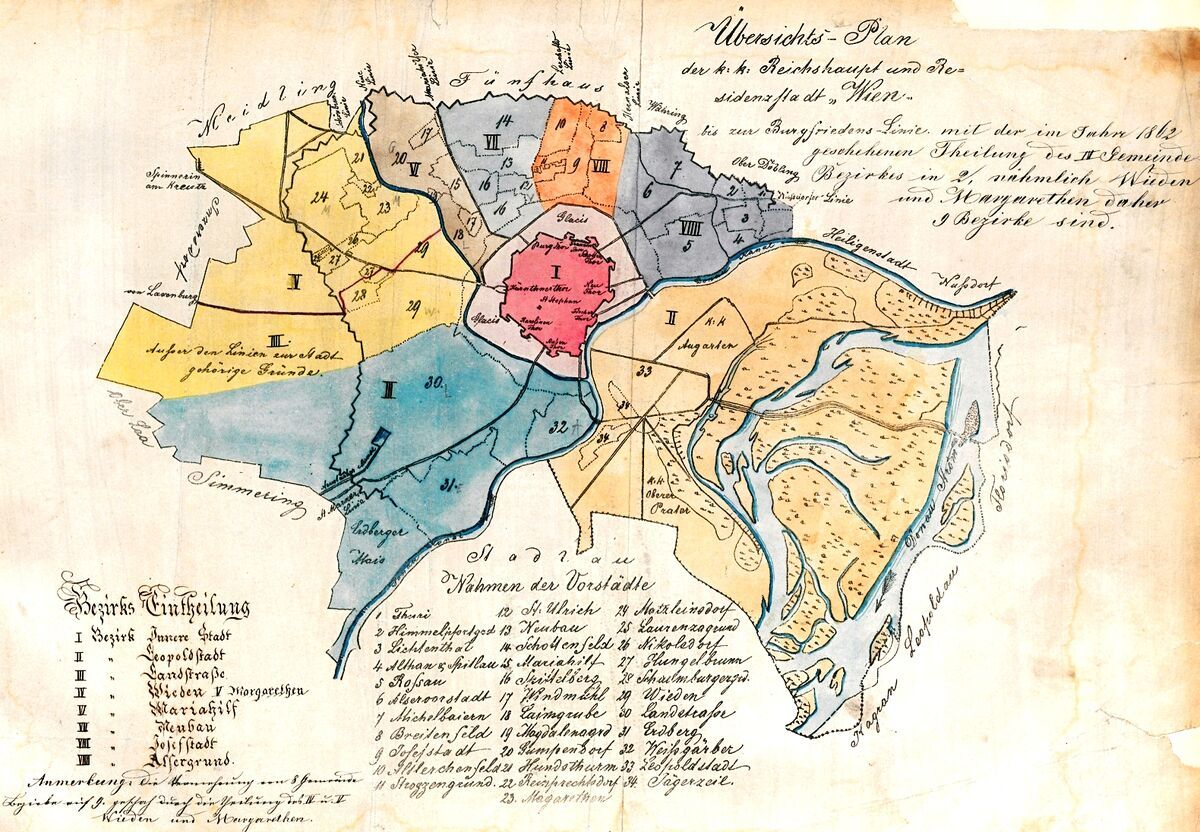 Übersichts-Plan
der k: k: Reichshaupt und Re=
sidenzstadt „Wien„
bis zur Burgfriedens-Linie mit der im Jahr 1862
geschehenen Theilung des IV Gemeinde
Bezirkes in 2, nähmlich Wieden
und Margarethen daher
9 Bezirke sind.
Meidling
Fünfhaus
Währing
Ober Döbling
Nußdorfer Linie
Heiligenstadt
Nußdorf
Mariahilfer Linie
Hernalser Linie
Spinnerin
am Kreutz
von Laxenburg
Ober Laa
Simmering
St Marxer
Linie
Erdberger
Mais
Ausser den Linien zur Stadt
gehörige Gründe.
Glacis
Burgthor
Kärnthnerthor
St Stephan
Neu
Thor
Glacis
Canal
k. k.
Augarten
k. k.
Oberer
Prater
Donau Strom
Floridsdorf
Leopoldau
Kagran
Stadlau
I
II
III
III
V
V
VII
VIII
VIIII
1
2
3
4
5
6
7
8
9
10
12
13
14
15
16
16
17
18
20
21
22
23
24
27
28
29
29
30.
31.
32
33
34
34
Bezirks Eintheilung
I Bezirk Innere Stadt
II „ Leopoldstadt
III „ Landstraße
IV „ Wieden V Margarethen
VI „ Mariahilf
VII „ Neubau
VIII „ Josefstadt
VIIII „ Alsergrund.
Anmerkung: die Vermehrung von 8 Gemeinde
Bezirke auf 9. geschah durch die Theilung des IV u. V
Wieden und Margarethen.
Nahmen der Vorstädte
1 Thuri
2 Himmelpfortgrd
3 Lichtenthal
4 Althan & Spitlau
5 Rossau
6 Alservorstadt
7 Michelbaiern
8 Breitenfeld
9 Josefstadt
10 Altlerchenfeld
11 Strozzengrund.
12 St. Ulrich
13 Neubau
14 Schottenfeld
15 Mariahilf
16 Spittelberg
17 Windmühl
18 Laimgrube
19 Magdalenagrd
20 Gumpendorf
21 Hundsthurm
22 Reinprechtsdorf
23. Magarethen
24 Matzleinsdorf
25 Laurenzagrund
26 Nikolsdorf
27 Hungelbrunn
28 Schaumburgergrd.
29 Wieden
30 Landstraße
31 Erdberg
32 Weißgärber
33 Leopoldstadt
34. Jägerzeil.